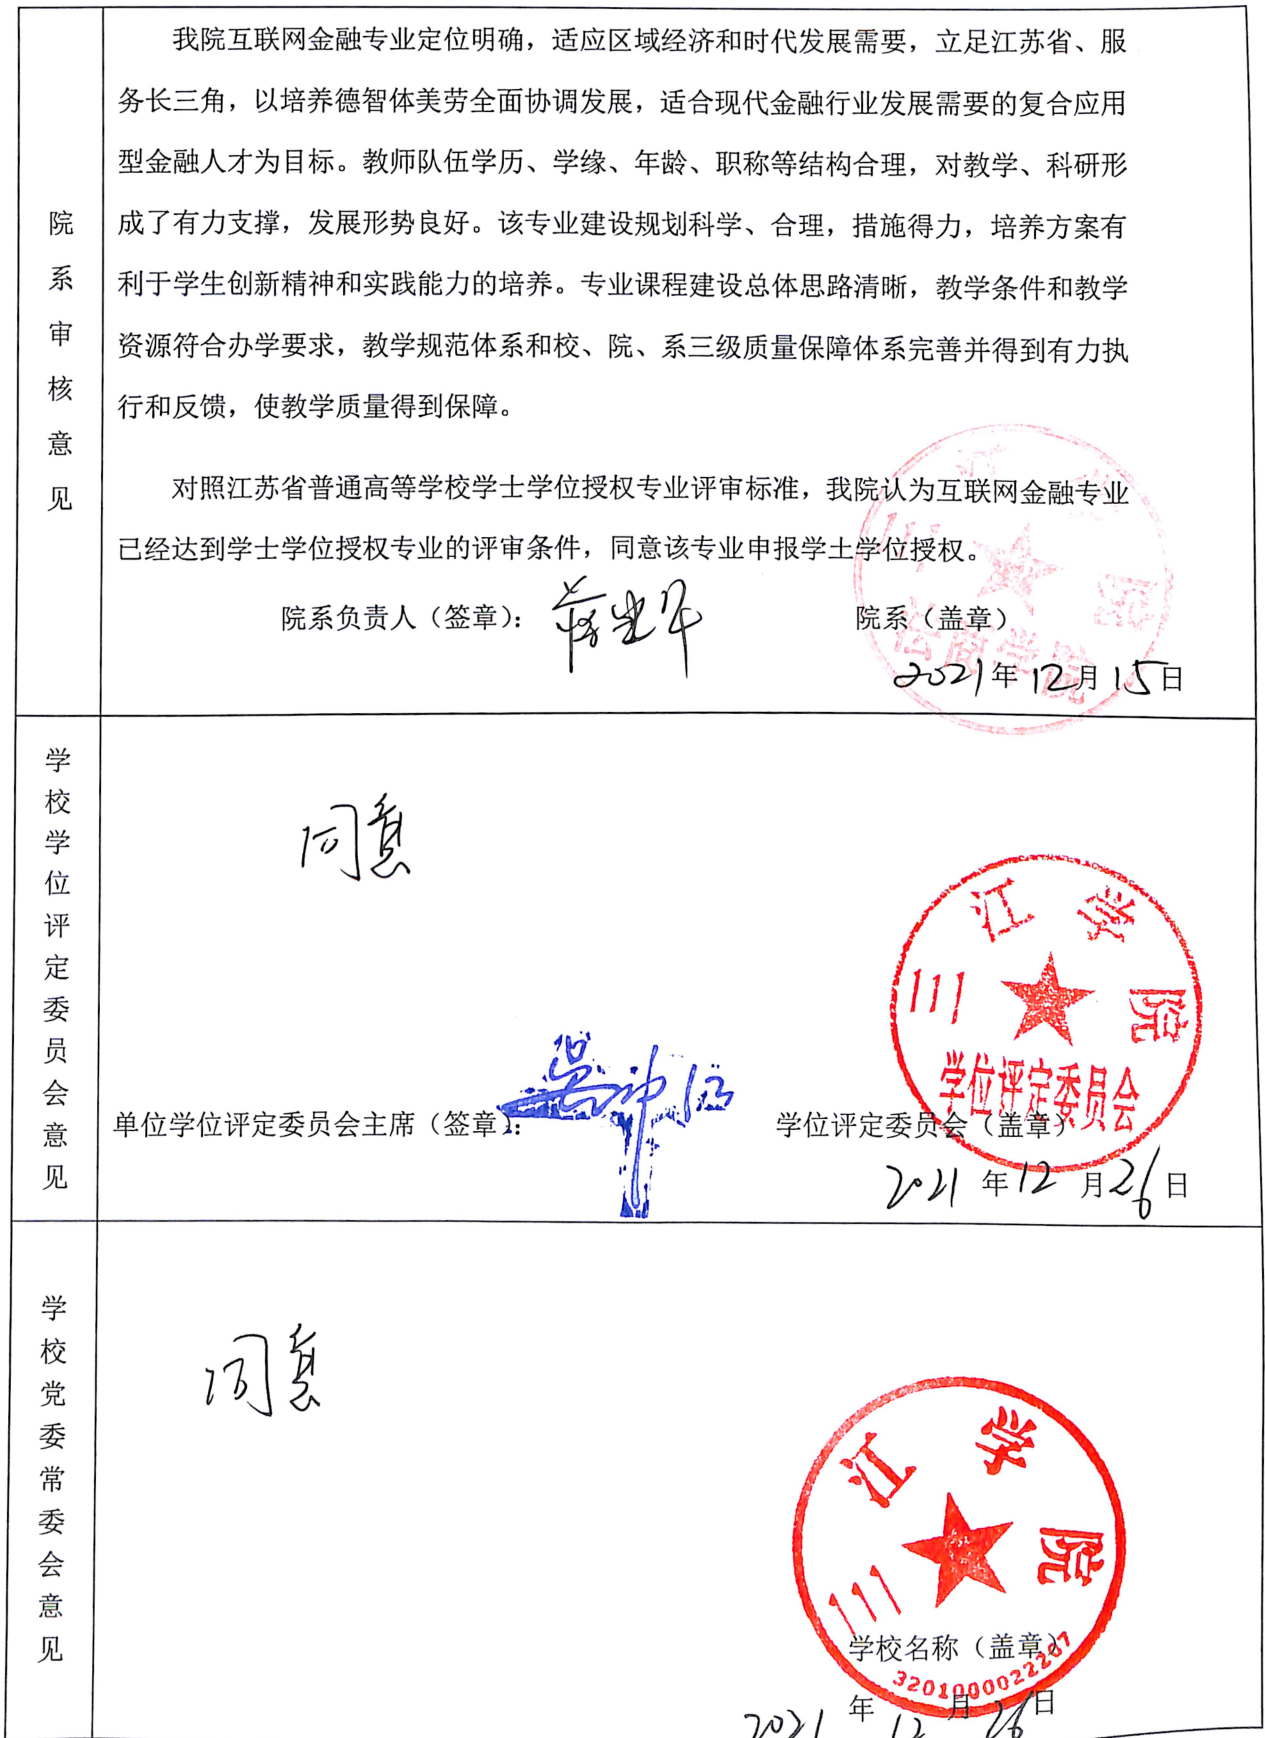 院系审核意见
我院互联网金融专业定位明确，适应区域经济和时代发展需要，立足江苏省、服
务长三角，以培养德智体美劳全面协调发展，适合现代金融行业发展需要的复合应用
型金融人才为目标。教师队伍学历、学缘、年龄、职称等结构合理，对教学、科研形
成了有力支撑，发展形势良好。该专业建设规划科学、合理，措施得力，培养方案有
利于学生创新精神和实践能力的培养。专业课程建设总体思路清晰，教学条件和教学
资源符合办学要求，教学规范体系和校、院、系三级质量保障体系完善并得到有力执
行和反馈，使教学质量得到保障。
对照江苏省普通高等学校学士学位授权专业评审标准，我院认为互联网金融专业
已经达到学士学位授权专业的评审条件，同意该专业申报学士学位授权。
院系负责人（签章）： 院系（盖章）
三江学院
法商学院
2021年12月15日
学校学位评定委员会意见
同意
三江学院
学位评定委员会
单位学位评定委员会主席（签章）： 学位评定委员会（盖章）
2021年12月26日
学校党委常委会意见
同意
三江学院
学校名称（盖章）
3201000022267
2021年12月26日